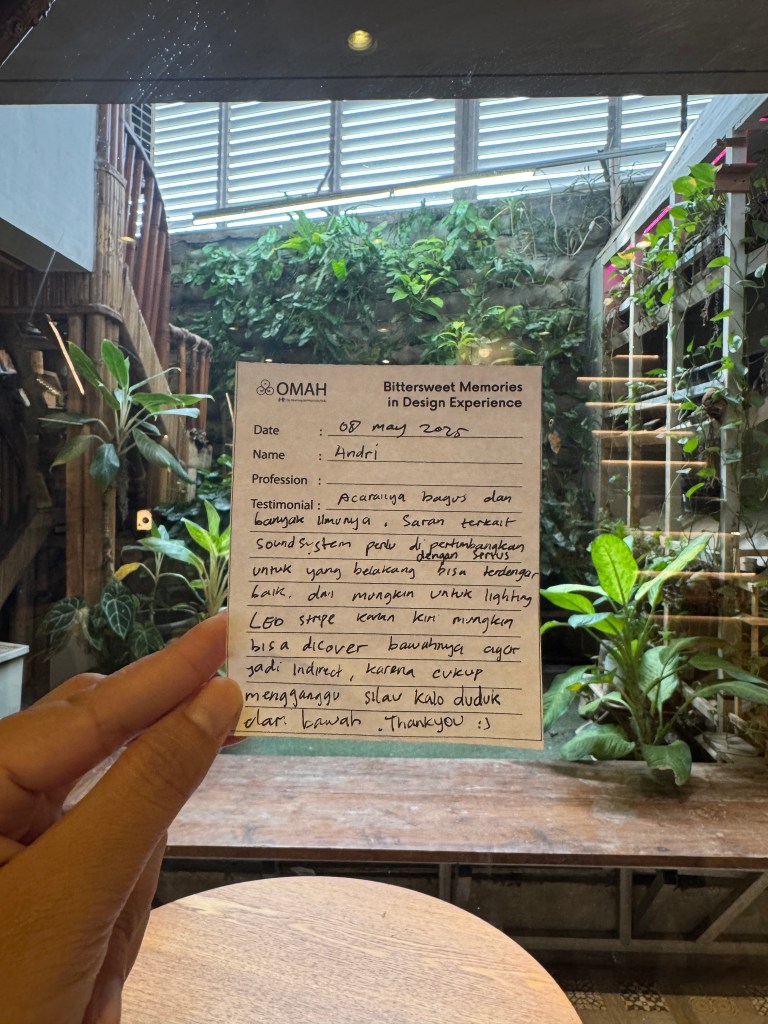 OMAH
Bittersweet Memories
in Design Experience
Date : 08 may 2025
Name : Andri
Profession :
Testimonial : Acaranya bagus dan
banyak ilmunya. Saran terkait
soundsystem perlu dipertimbangkan
dengan serius
untuk yang belakang bisa terdengar
baik. dan mungkin untuk lighting
LED stripe kanan kiri mungkin
bisa dicover bawahnya agar
jadi indirect, karena cukup
mengganggu silau kalo duduk
dari bawah. Thankyou :)